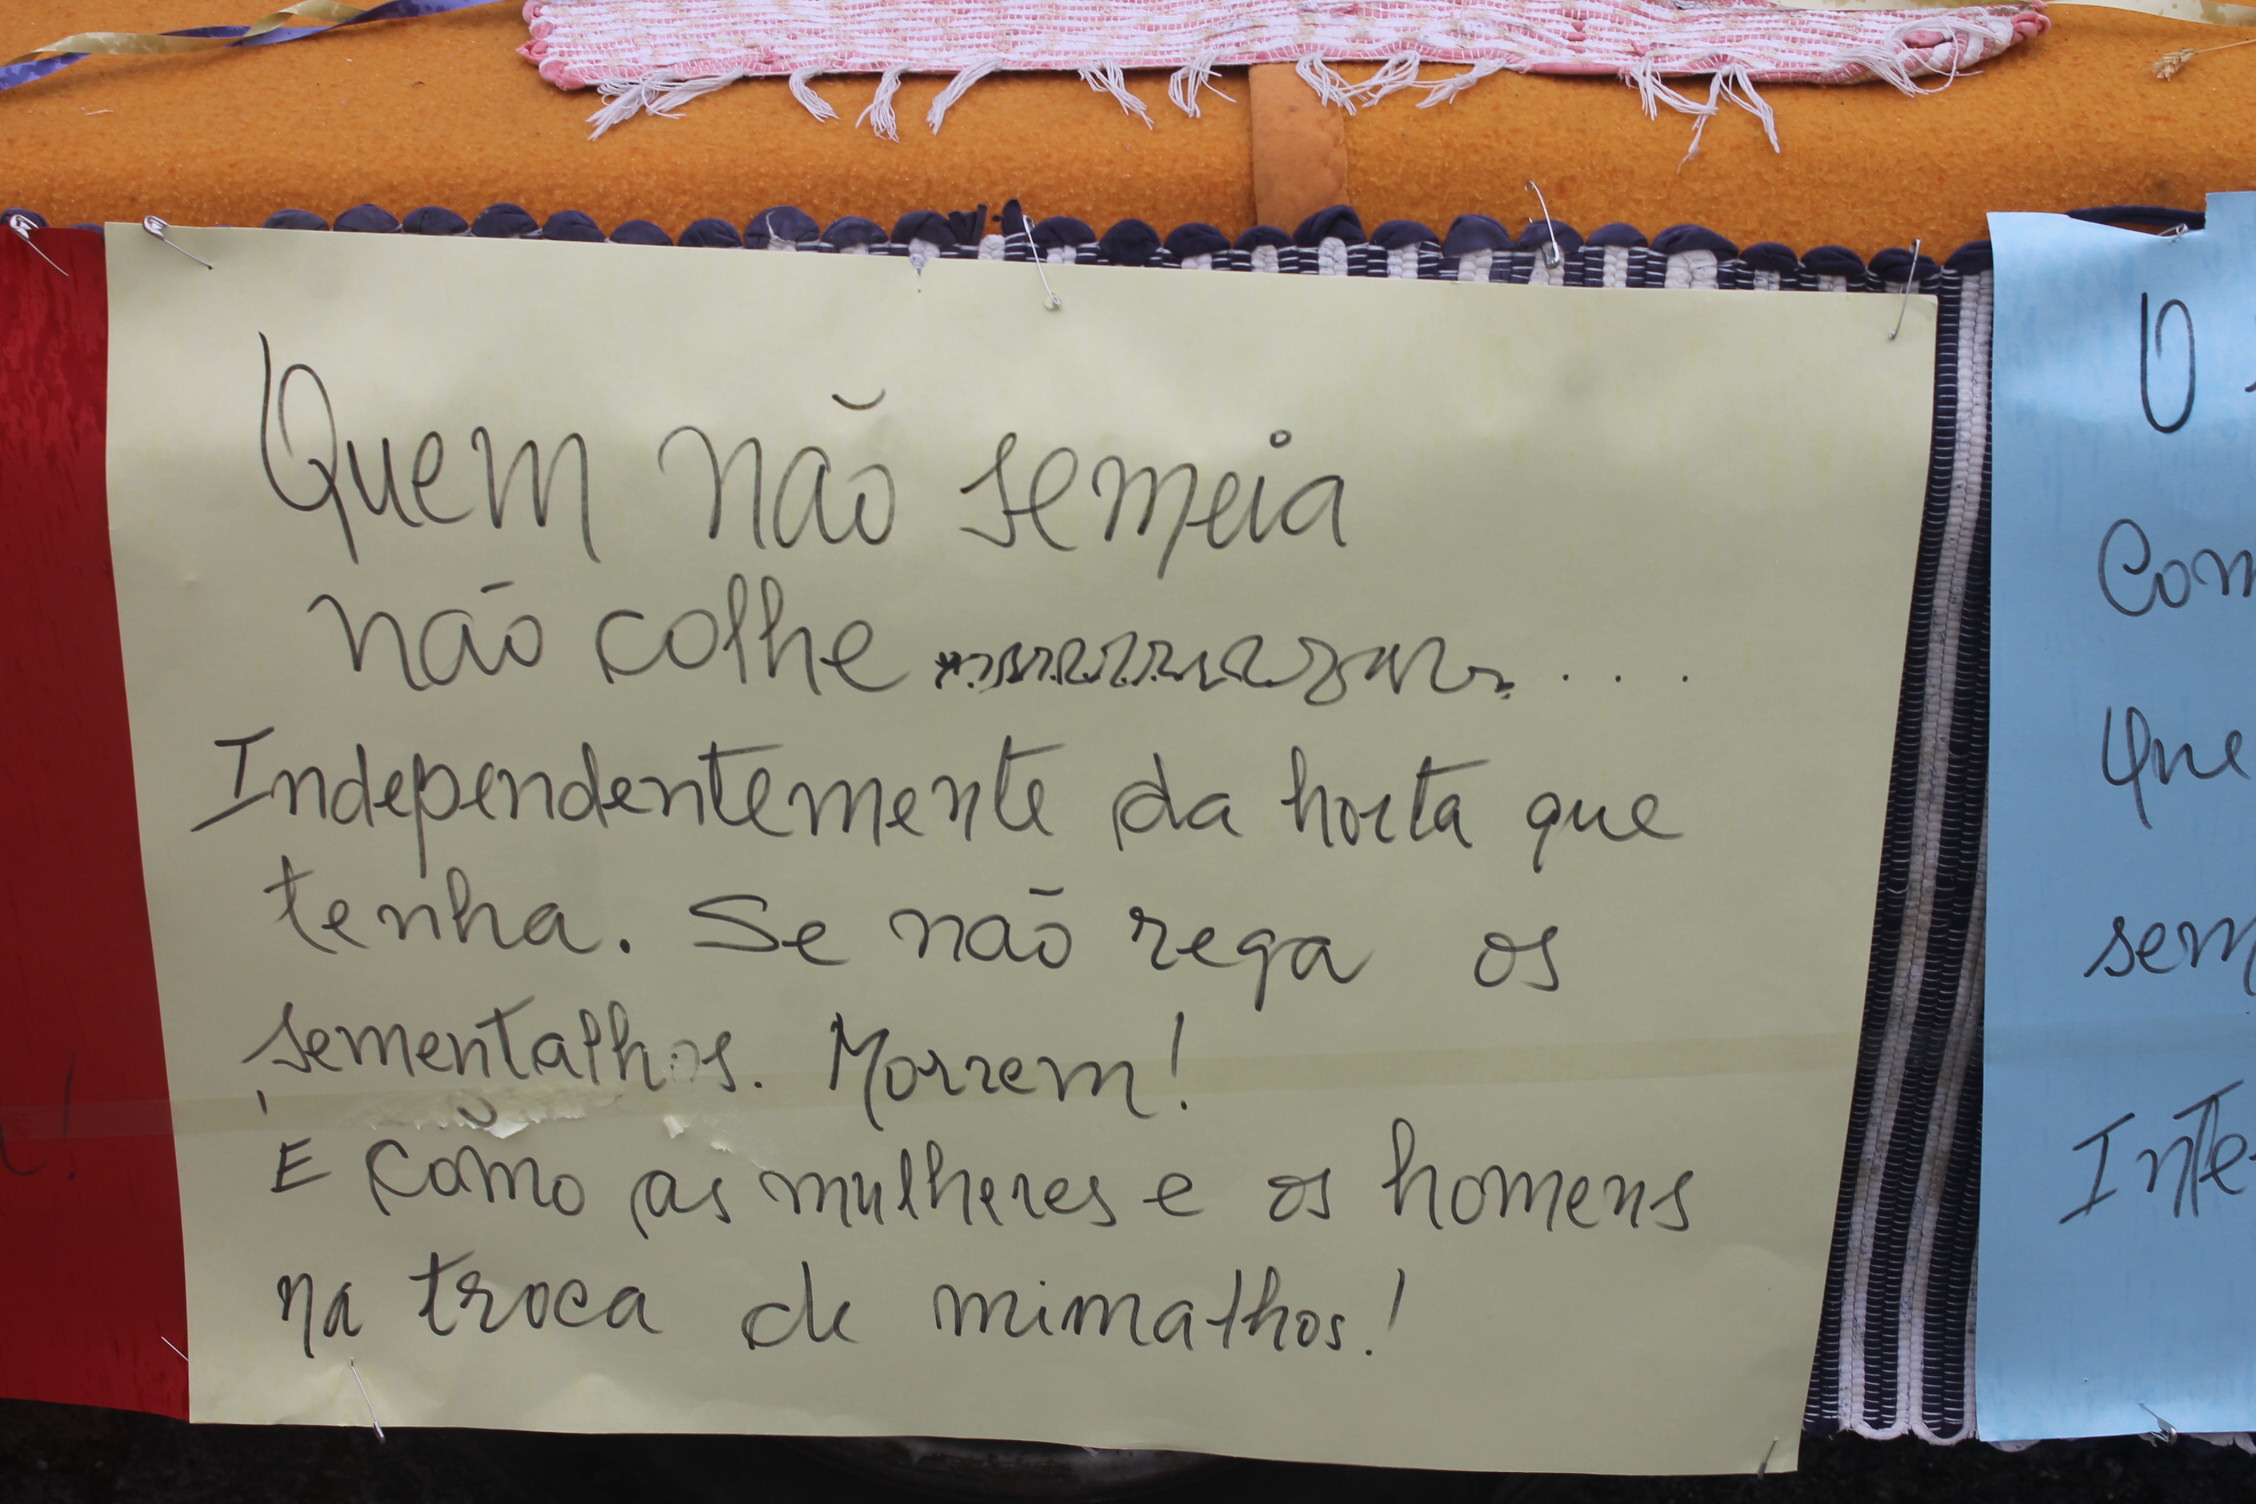 Quem não semeia
não colhe ....
Independentemente da horta que
tenha. Se não rega os
sementalhos. Morrem!
É como as mulheres e os homens
na troca de mimalhos!
O
Com
Que
sem
Inte
!